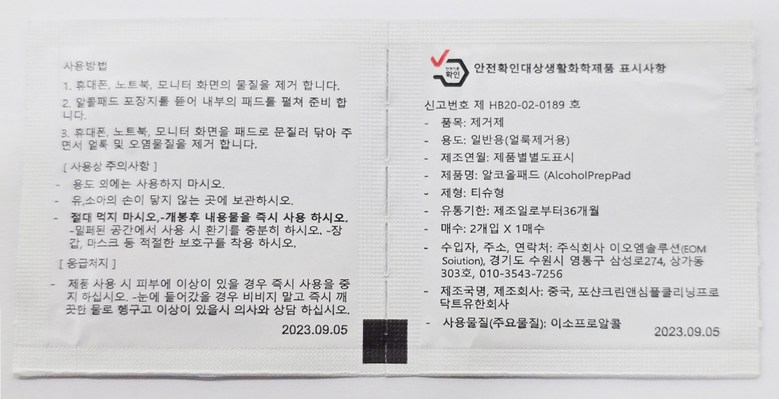 사용방법
1. 휴대폰, 노트북, 모니터 화면의 물질을 제거 합니다.
2. 알콜패드 포장지를 뜯어 내부의 패드를 펼쳐 준비 합
니다.
3. 휴대폰, 노트북, 모니터 화면을 패드로 문질러 닦아 주
면서 얼룩 및 오염물질을 제거 합니다.
[ 사용상 주의사항 ]
- 용도 외에는 사용하지 마시오.
- 유,소아의 손이 닿지 않는 곳에 보관하시오.
- 절대 먹지 마시오,-개봉후 내용물을 즉시 사용 하시오.
-밀폐된 공간에서 사용 시 환기를 충분히 하시오. -장
갑, 마스크 등 적절한 보호구를 착용 하시오.
[ 응급처지 ]
- 제품 사용 시 피부에 이상이 있을 경우 즉시 사용을 중
지 하십시오. -눈에 들어갔을 경우 비비지 말고 즉시 깨
끗한 물로 헹구고 이상이 있을시 의사와 상담 하십시오.
2023.09.05
확인
안전확인대상생활화학제품 표시사항
신고번호 제 HB20-02-0189 호
- 품목: 제거제
- 용도: 일반용(얼룩제거용)
- 제조연월: 제품별별도표시
- 제품명: 알코올패드 (AlcoholPrepPad
- 제형: 티슈형
- 유통기한: 제조일로부터36개월
- 매수: 2개입 X 1매수
- 수입자, 주소, 연락처: 주식회사 이오엠솔루션(EOM
Soiution), 경기도 수원시 영통구 삼성로274, 상가동
303호, 010-3543-7256
- 제조국명, 제조회사: 중국, 포샨크린앤심플클리닝프로
닥트유한회사
- 사용물질(주요물질): 이소프로알콜
2023.09.05